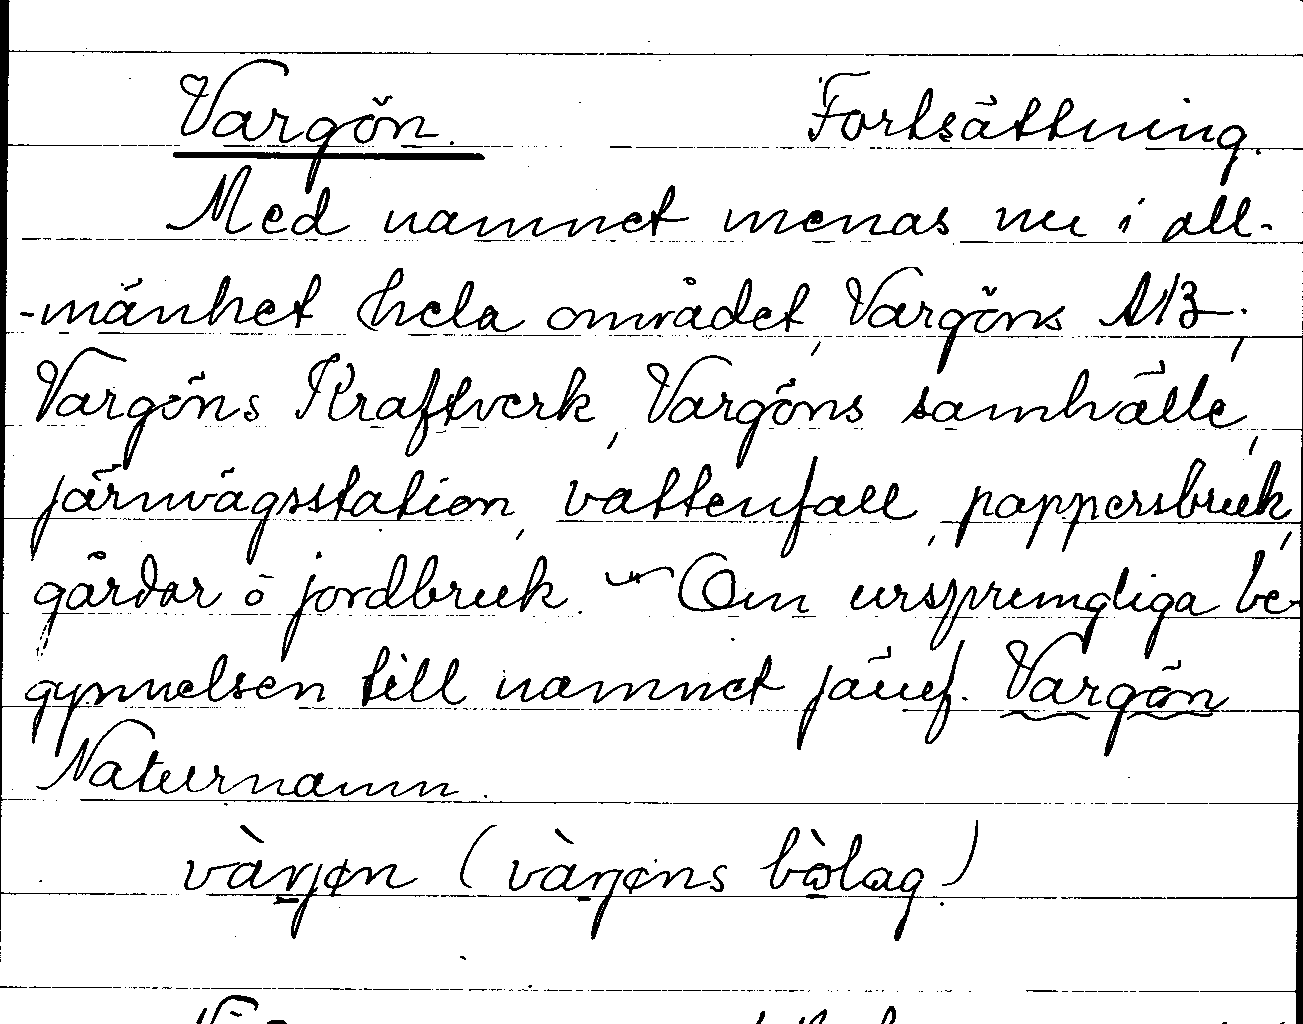 Vargön. Fortsättning.
Med namnet menas nu i all-
-mänhet hela området, Vargöns AB;
Vargöns Kraftverk, Vargöns samhälle,
järnvägsstation, vattenfall, pappersbruk,
gårdar o jordbruk. ~ Om ursprungliga be-
gynnelsen till namnet jämf. Vargön
Naturnamn.
vàrjøn (vàrjøns bòlag)